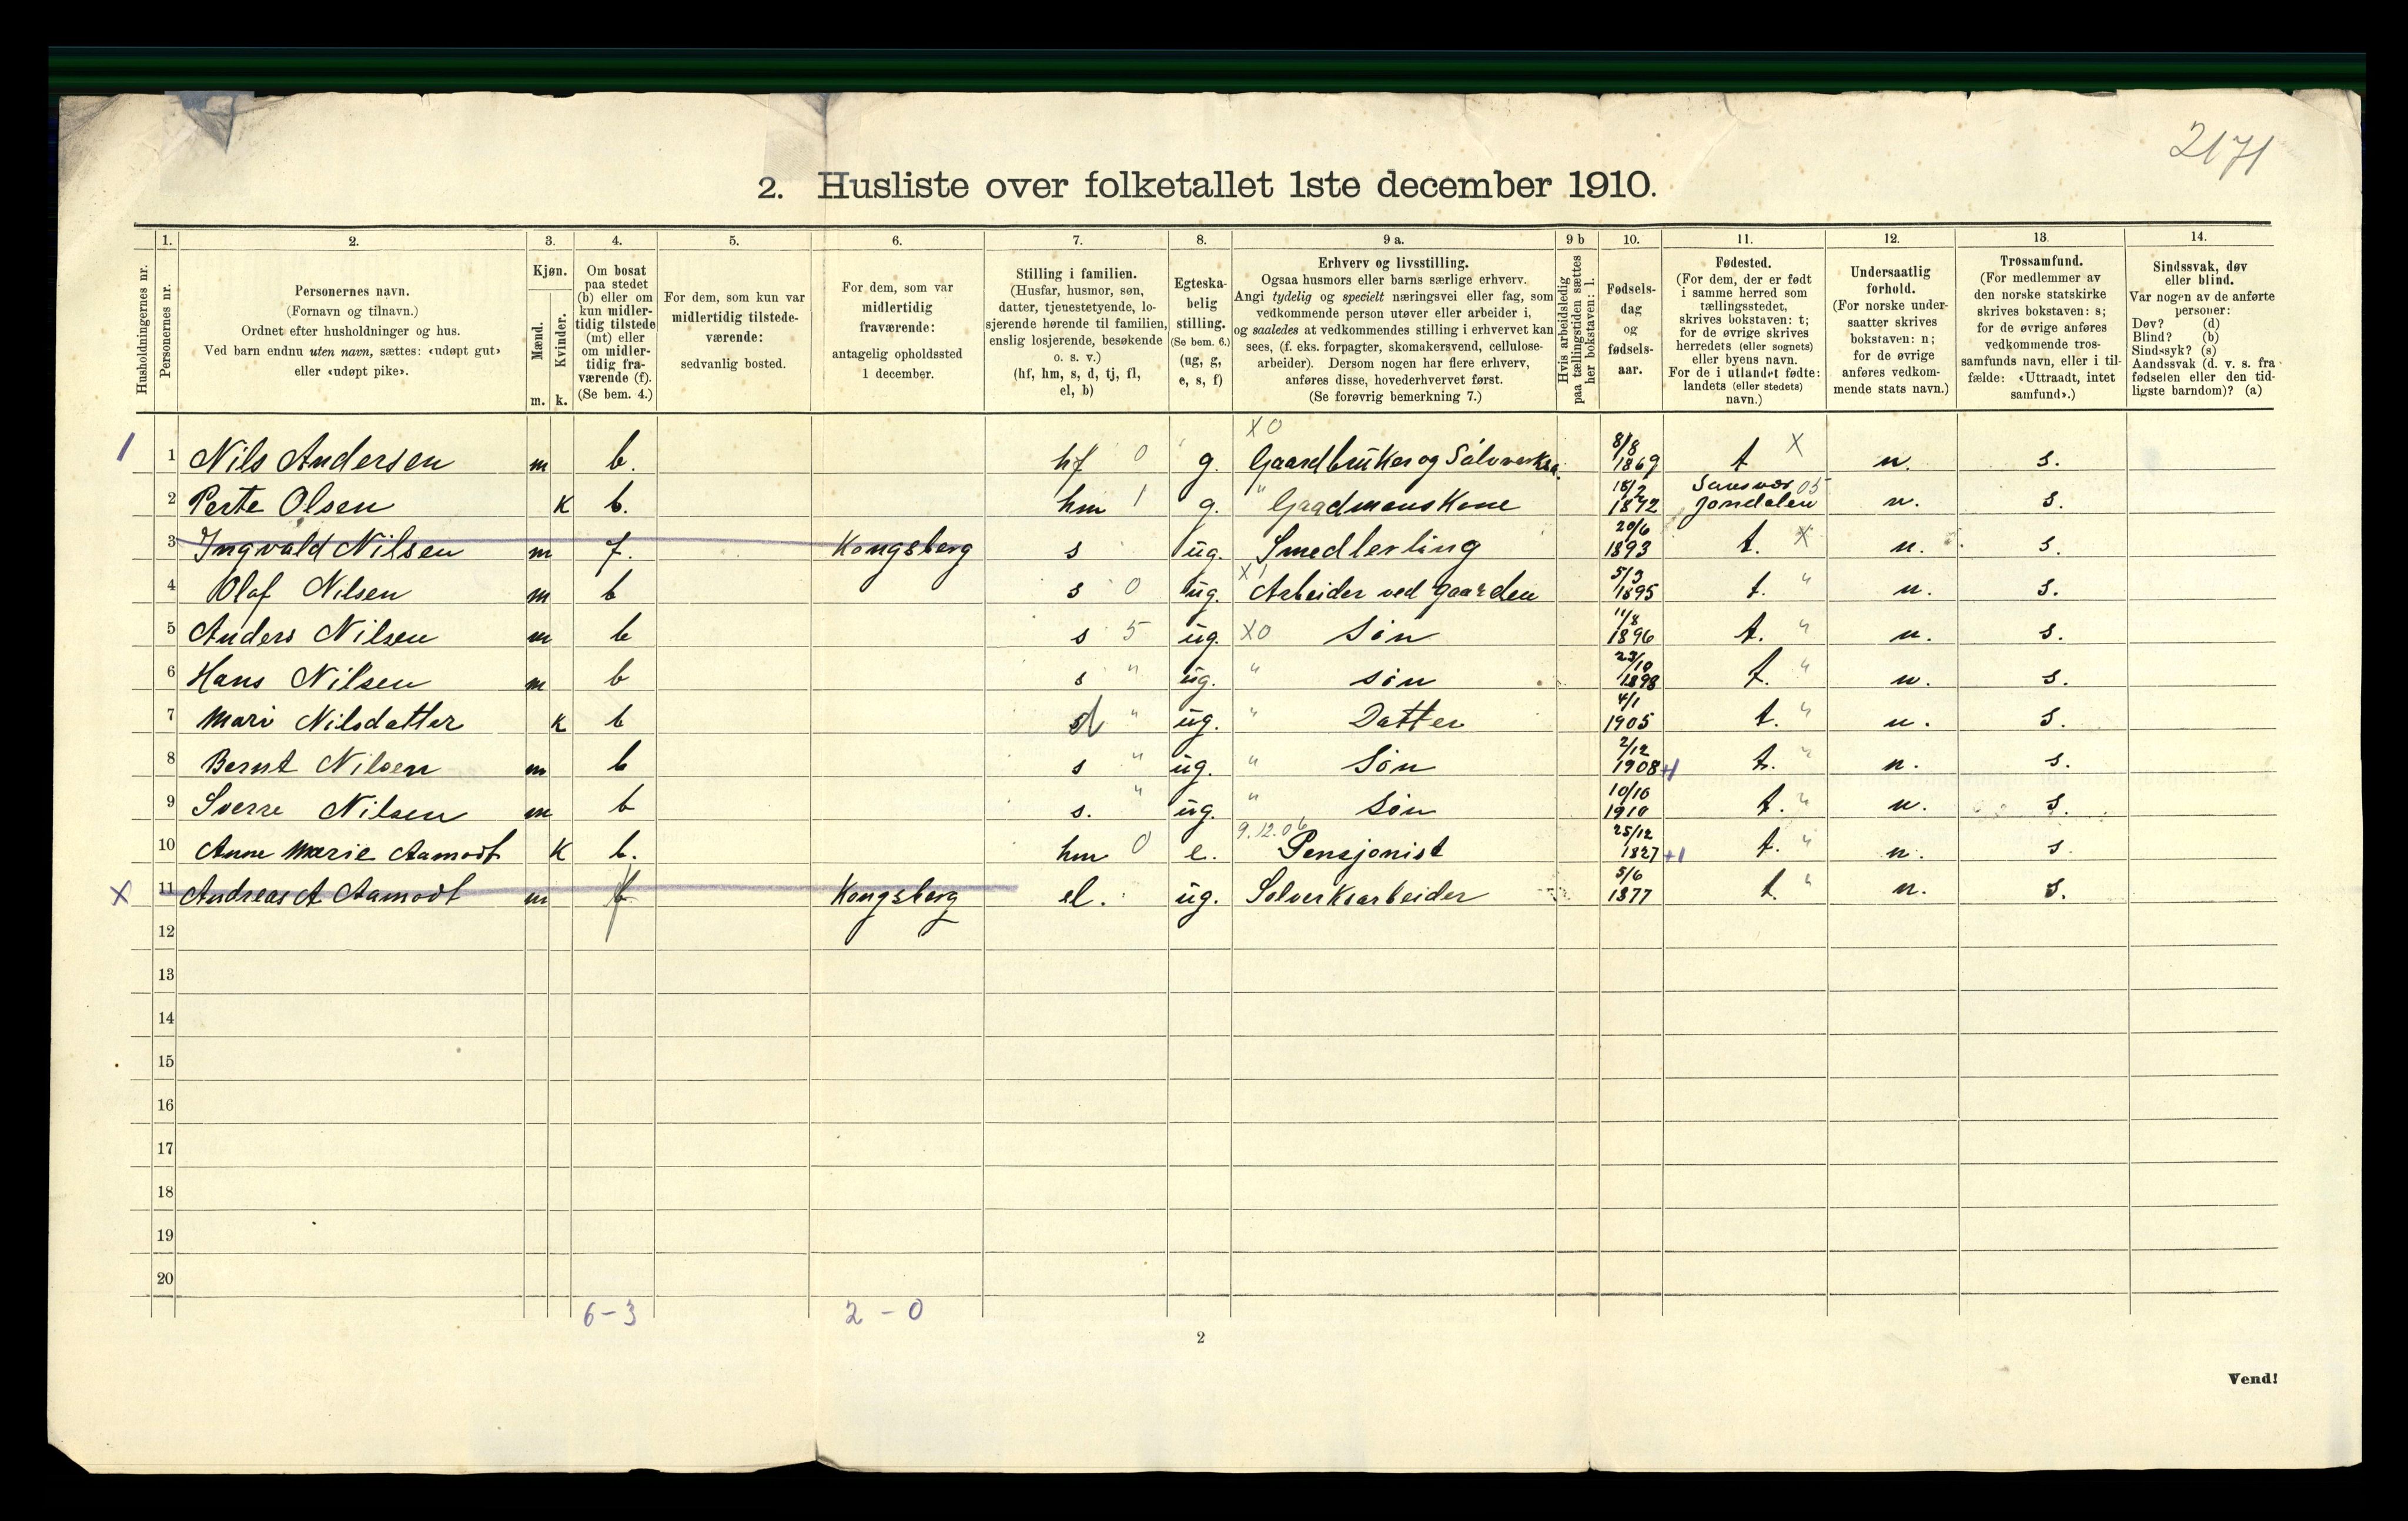 2171
2. Husliste over folketallet 1ste december 1910.
1. 2. 3. 4. 5. 6. 7. 8. 9 a. 9 b 10. 11. 12. 13. 14.
Husholdningernes nr.
Personernes nr.
Personernes navn.
(Fornavn og tilnavn.)
Ordnet efter husholdninger og hus.
Ved barn endnu uten navn, sættes: «udøpt gut»
eller «udøpt pike».
Kjøn.
Mænd.
Kvinder.
m. k.
Om bosat
paa stedet
(b) eller om
kun midler-
tidig tilstede
(mt) eller
om midler-
tidig fra-
værende (f).
(Se bem. 4.)
For dem, som kun var
midlertidig tilstede-
værende:
sedvanlig bosted.
For dem, som var
midlertidig
fraværende:
antagelig opholdssted
1 december.
Stilling i familien.
(Husfar, husmor, søn,
datter, tjenestetyende, lo-
sjerende hørende til familien,
enslig losjerende, besøkende
o. s. v.)
(hf, hm, s, d, tj, fl,
el, b)
Egteska-
belig
stilling.
(Se bem. 6.)
(ug, g,
e, s, f)
Erhverv og livsstilling.
Ogsaa husmors eller barns særlige erhverv.
Angi tydelig og specielt næringsvei eller fag, som
vedkommende person utøver eller arbeider i,
og saaledes at vedkommendes stilling i erhvervet kan
sees, (f. eks. forpagter, skomakersvend, cellulose-
arbeider). Dersom nogen har flere erhverv,
anføres disse, hovederhvervet først.
(Se forøvrig bemerkning 7.)
Hvis arbeidsledig
paa tællingstiden sættes
her bokstaven: l.
Fødsels-
dag
og
fødsels-
aar.
Fødested.
(For dem, der er født
i samme herred som
tællingsstedet,
skrives bokstaven: t;
for de øvrige skrives
herredets (eller sognets)
eller byens navn.
For de i utlandet fødte:
landets (eller stedets)
navn.)
Undersaatlig
forhold.
(For norske under-
saatter skrives
bokstaven: n;
for de øvrige
anføres vedkom-
mende stats navn.)
Trossamfund.
(For medlemmer av
den norske statskirke
skrives bokstaven: s;
for de øvrige anføres
vedkommende tros-
samfunds navn, eller i til-
fælde: «Uttraadt, intet
samfund».)
Sindssvak, døv
eller blind.
Var nogen av de anførte
personer:
Døv? (d)
Blind? (b)
Sindssyk? (s)
Aandssvak (d. v. s. fra
fødselen eller den tid-
ligste barndom)? (a)
X0
1 1 Nils Andersen m b. hf 0 g. Gaardbruker og Sølvverksa. 8/8 1869 t X n. s.
2 Perte Olsen K b. hm 1 g. " Gaadmans Kone 18/2 1872 Sansvær 05 Jondalen n. s.
3 Ingvald Nilsen m f. Kongsberg s ug. Smedlerling 20/6 1893 t. X n. s.
4 Olaf Nilsen m b s 0 ug. X1 Arbeider ved gaarden 5/3 1895 t. " n. s.
5 Anders Nilsen m b s 5 ug. X0 Søn 11/8 1896 t. " n. s.
6 Hans Nilsen m b s " ug. " søn 23/10 1898 t. " n. s.
7 Mari Nilsdatter K b d " ug. " Datter 4/1 1905 t. " n. s.
8 Bernt Nilsen m b s " ug. " Søn 2/12 1908 +1 t. " n. s.
9 Sverre Nilsen m b s. " ug. " søn 10/10 1910 t. " n. s.
9.12.06
10 Anne Marie Aamodt K b. hm 0 e. Pensjonist 25/12 1827 +1 t. " n. s
X 11 Andreas A Aamodt m f Kongsberg el. ug. Solverksarbeider 5/6 1877 t. " n. s.
12
13
14
15
16
17
18
19
20
6-3 2-0
2
Vend!